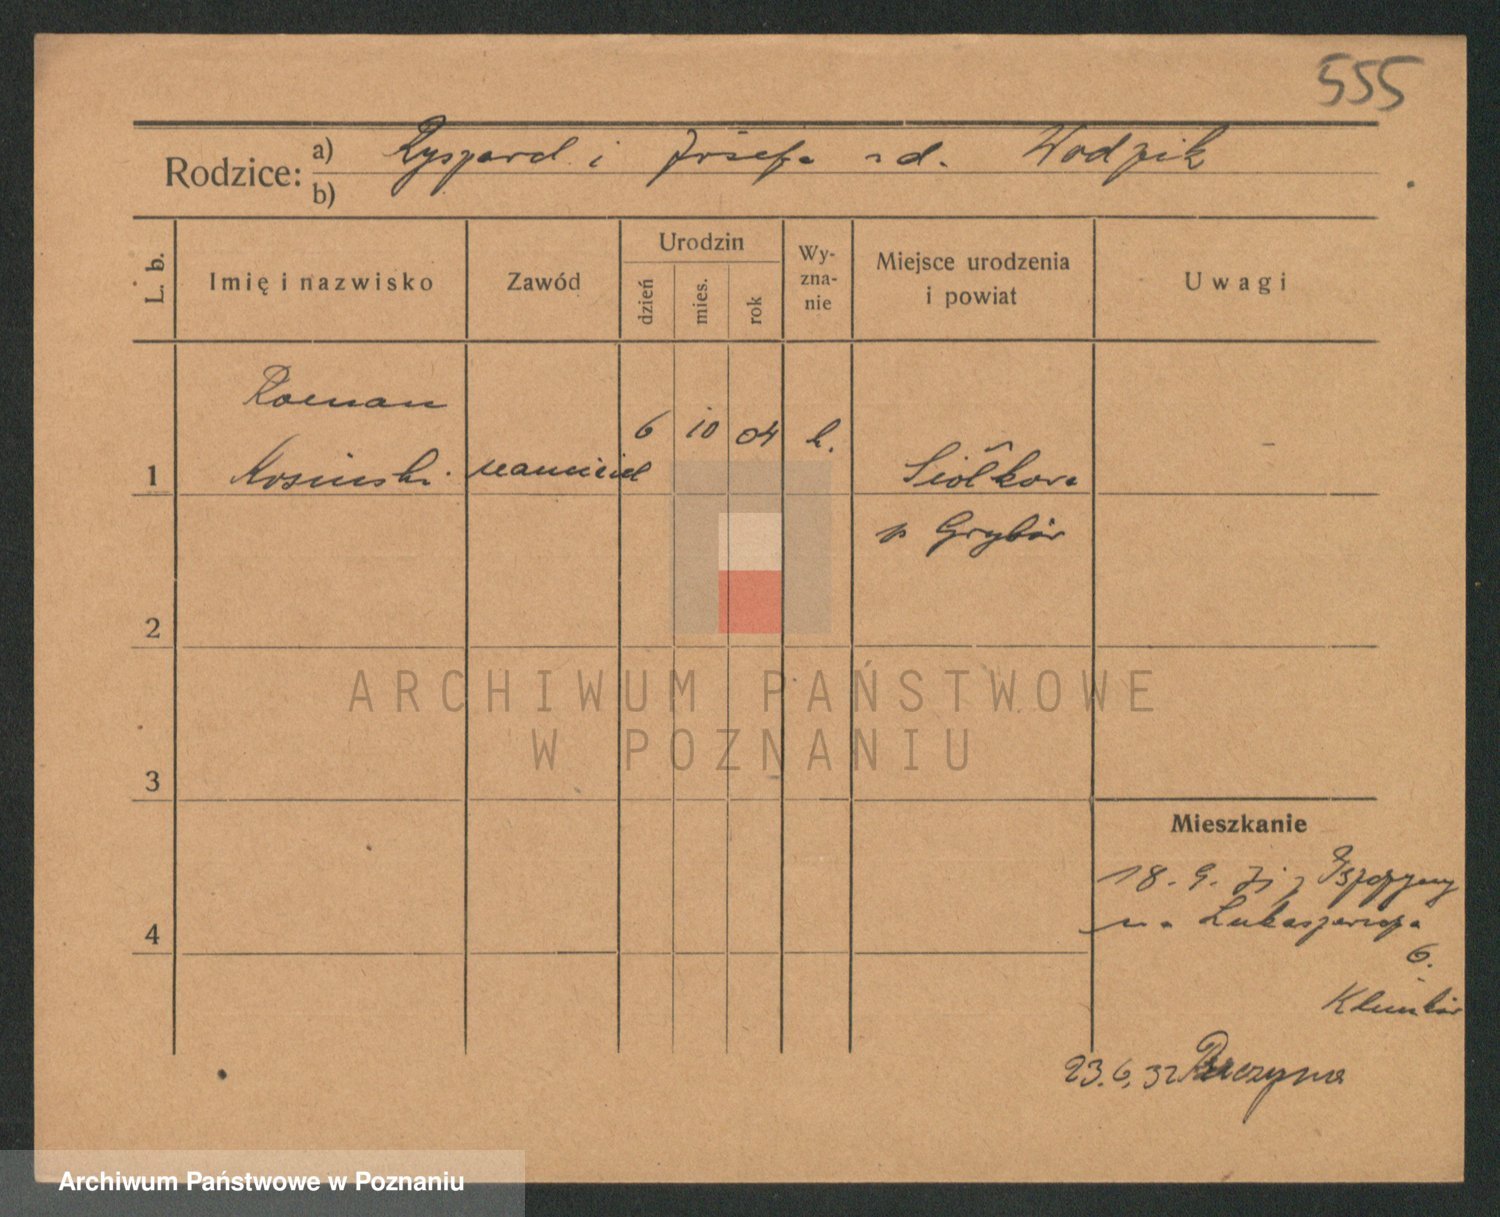 555
Rodzice: a) Ryszard i Józefa zd. Wodzik
b)
L. b. Imię i nazwisko Zawód Urodzin dzień mies. rok Wy-zna-nie Miejsce urodzenia i powiat Uwagi
Roman
6 10 04 k.
1 Kosiński nauczyciel Siółkowa
p Grybów
2
ARCHIWUM PAŃSTWOWE
W POZNANIU
3
Mieszkanie
18. 9. 31 z
4 na Łukaszewicza
6.
23. 6. 32
Archiwum Państwowe w Poznaniu